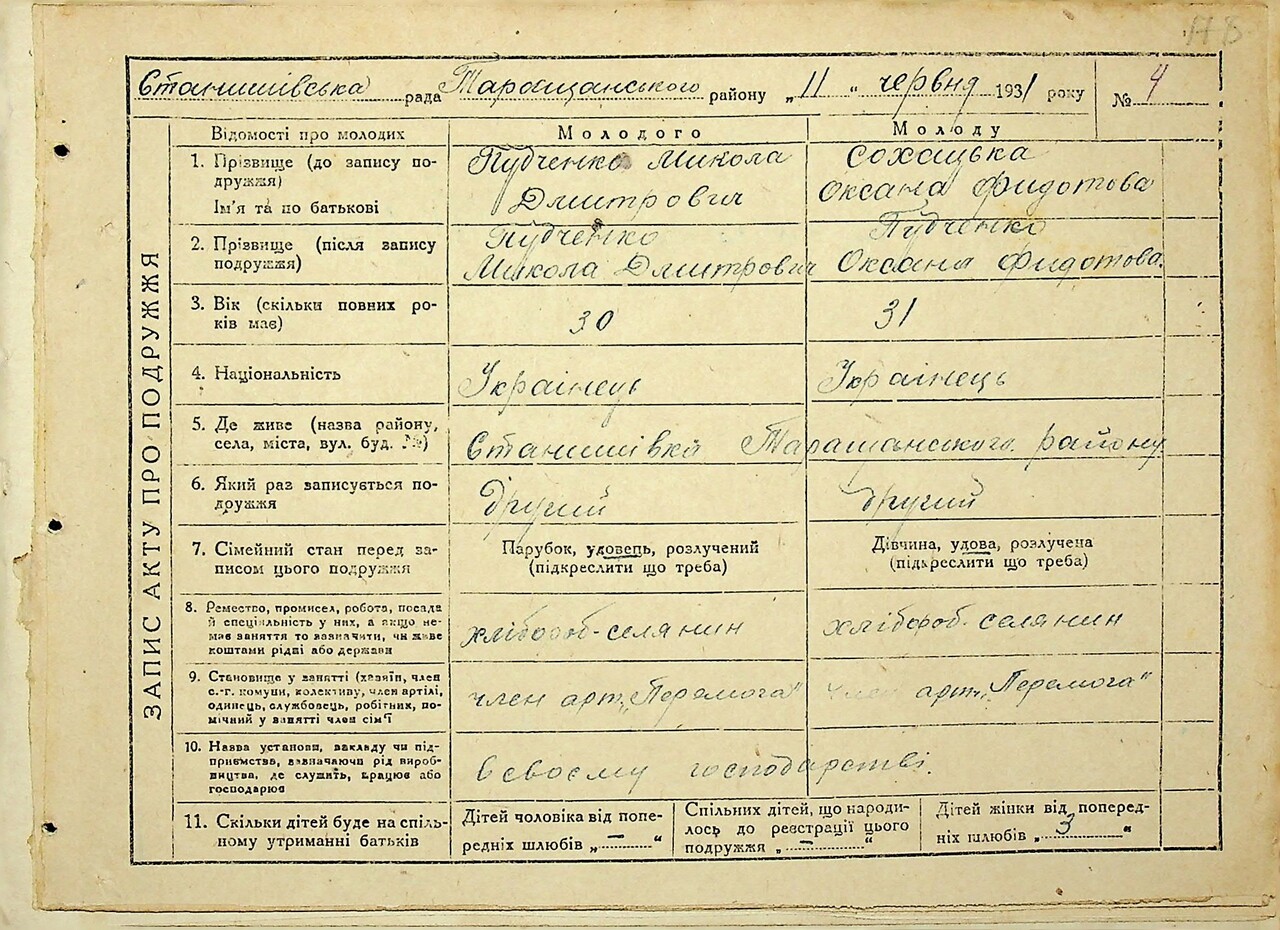 Станишівська рада Таращанського району „11“ червня 1931 року № 4
ЗАПИС АКТУ ПРО ПОДРУЖЖЯ
Відомості про молодих
Молодого
Молоду
1. Прізвище (до запису по-
дружжя)
Ім'я та по батькові
Пудченко Микола
Дмитрович
Сохацька
Оксана Фидотова
2. Прізвище (після запису
подружжя)
Пудченко
Микола Дмитрович
Пудченко
Оксана Фидотова.
3. Вік (скільки повних ро-
ків має)
30
31
4. Національність
Украінець
Украінець
5. Де живе (назва району,
села, міста, вул. буд. №)
Станишівка Таращанського району
6. Який раз записується по-
дружжя
другий
другий
7. Сімейний стан перед за-
писом цього подружжя
Парубок, удовець, розлучений
(підкреслити що треба)
Дівчина, удова, розлучена
(підкреслити що треба)
8. Ремество, промисел, робота, посада
й спеціяльність у них, а якщо не-
має заняття то зазначити, чи живе
коштами рідні або держави
хлібороб-селянин
хлібороб-селянин
9. Становище у занятті (хазяїн, член
с.-г. комуни, колективу, член артілі,
одинець, службовець, робітник, по-
мічний у занятті член сім'ї
член арт. „Перемога“
член арт. „Перемога“
10. Назва установи, закладу чи під-
приємства, зазначаючи рід вироб-
ництва, де служить, працює або
господарює
в своєму господарстві.
11. Скільки дітей буде на спіль-
ному утриманні батьків
Дітей чоловіка від попе-
редніх шлюбів „—“
Спільних дітей, що народи-
лось до реєстрації цього
подружжя „—“
Дітей жінки від поперед-
ніх шлюбів „3“